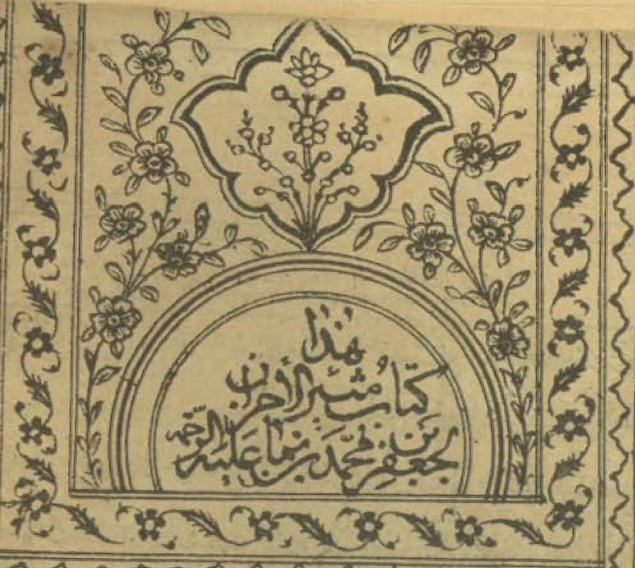 هذا
كتاب مثير الأحزان
لجعفر بن محمّد بن نما عليه الرّحمه